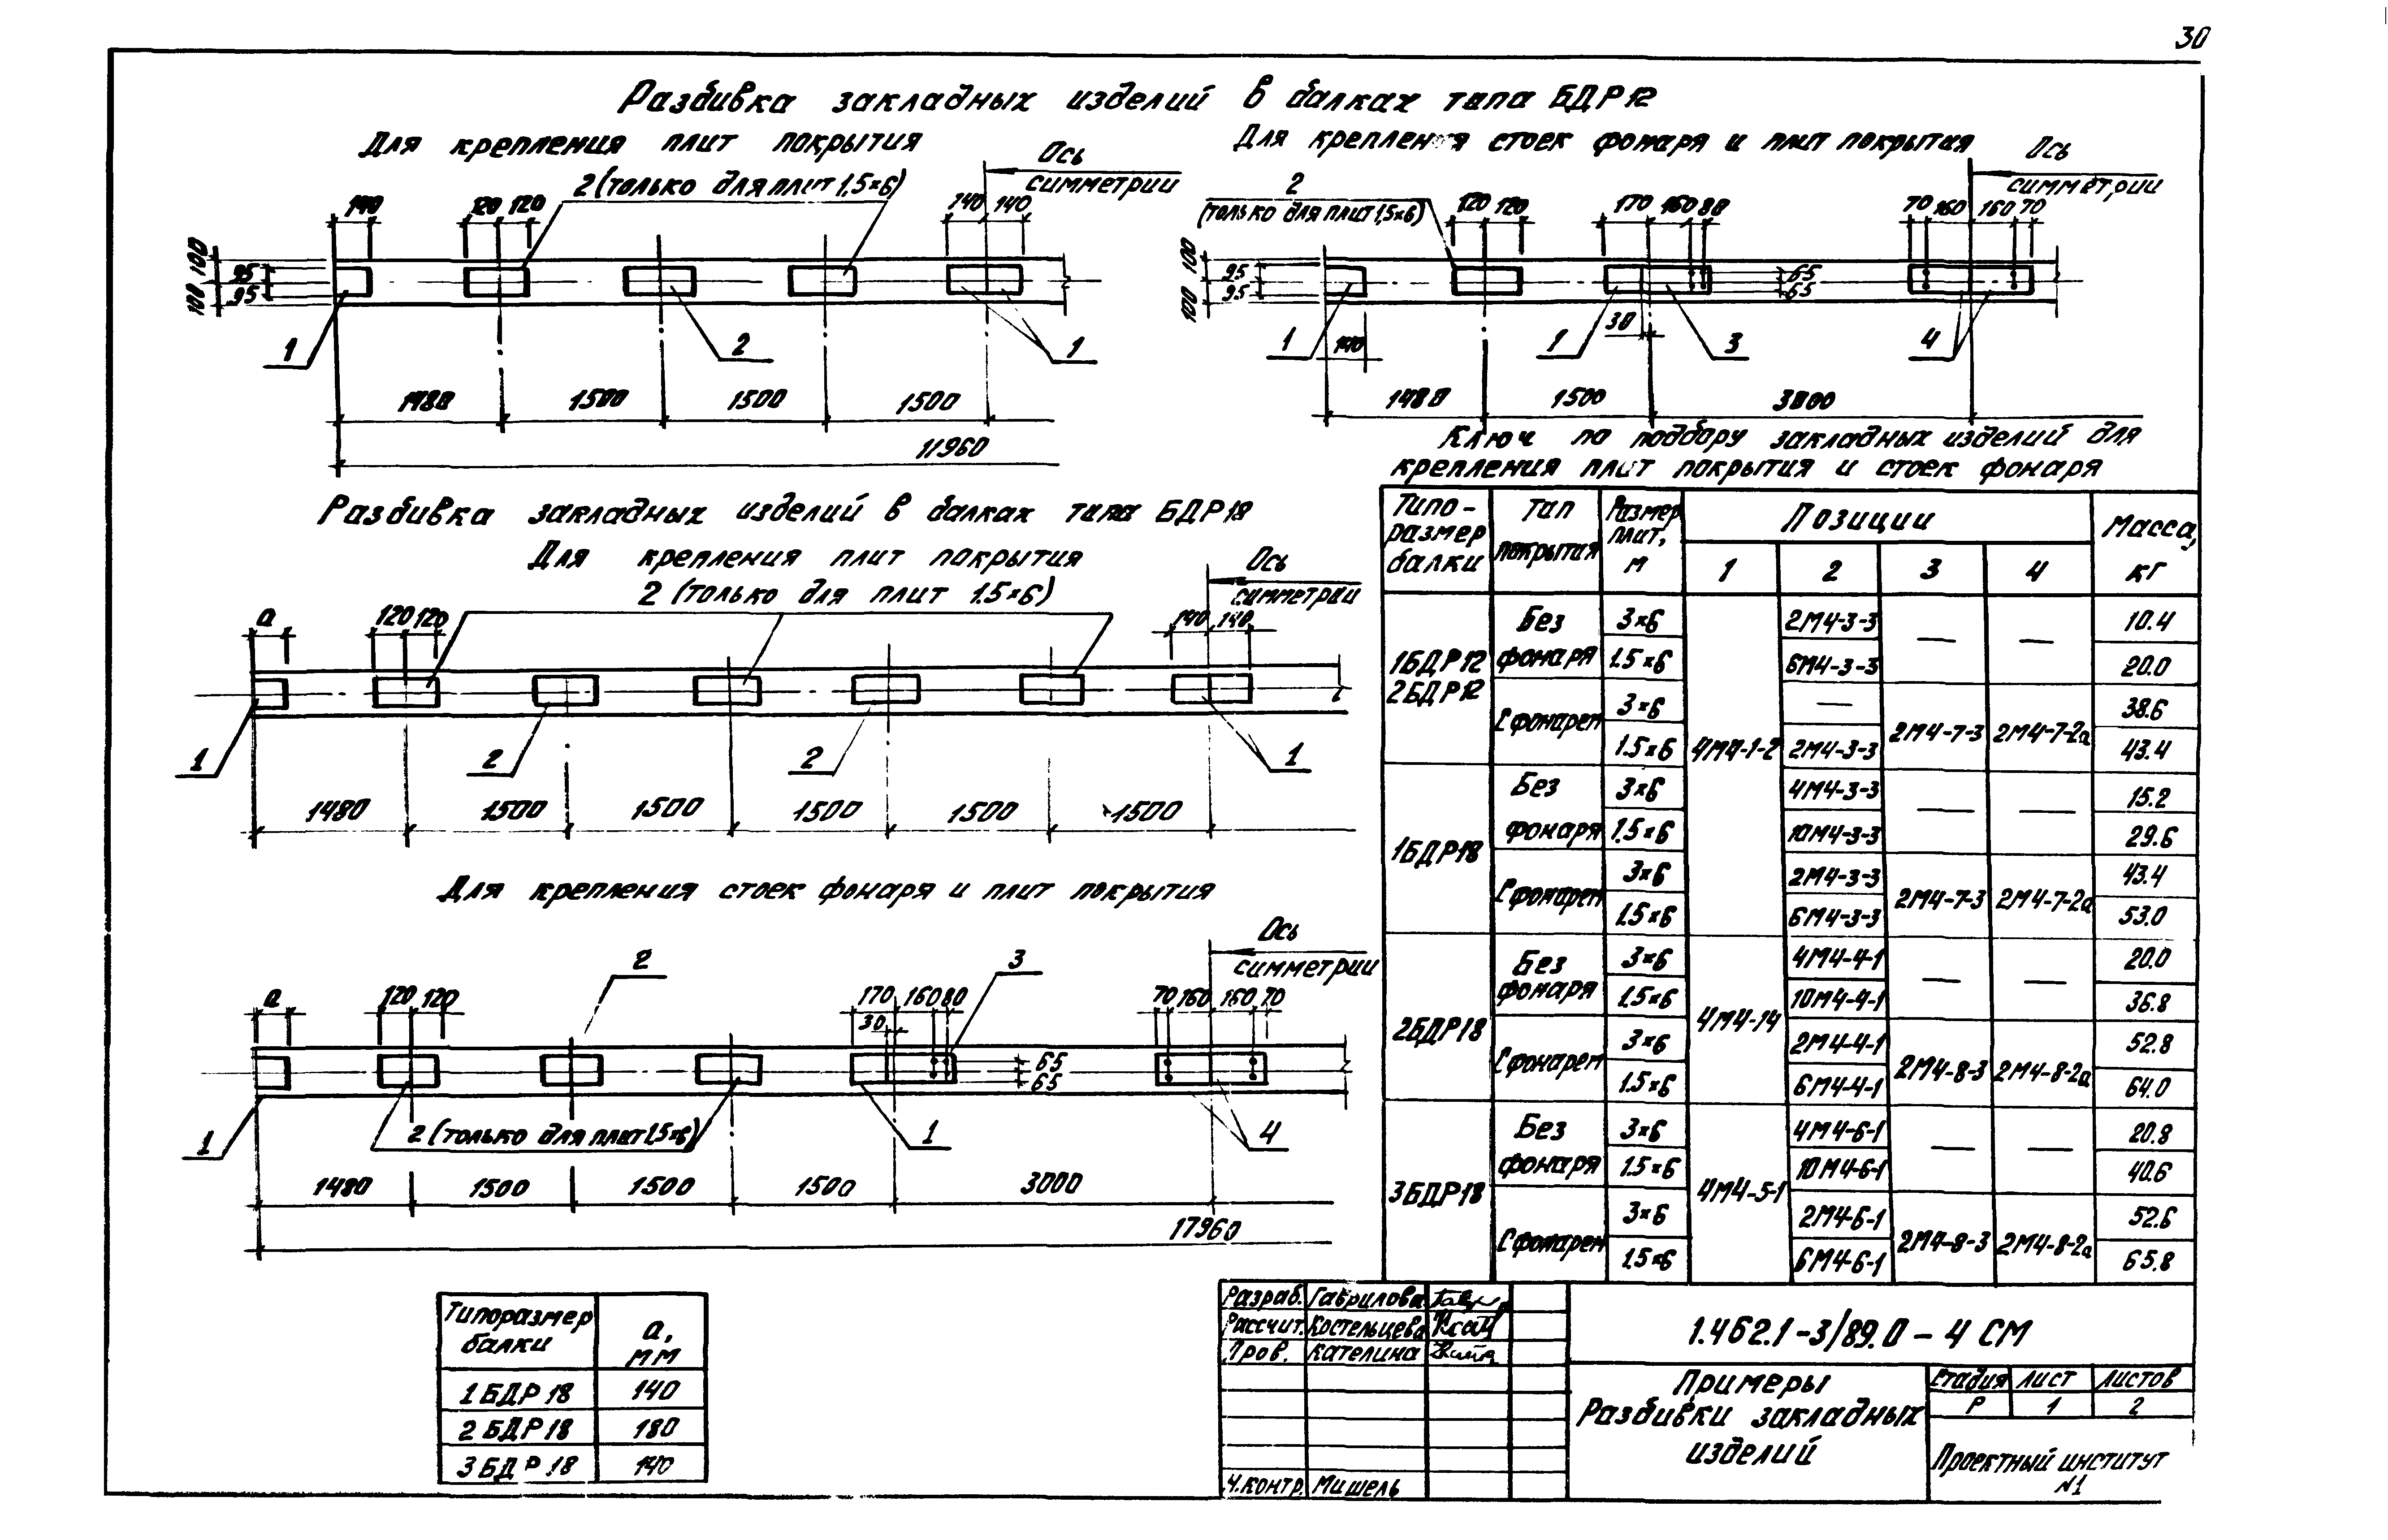 30
Разбивка закладных изделий в балках типа БДР12
Для крепления плит покрытия
2 (только для плит 1,5×6)
Ось
симметрии
140
120 120
140 140
100
100
95
95
1
2
1
1480
1500
1500
1500
11960
Для крепления стоек фонаря и плит покрытия
Ось
симметрии
2
(только для плит 1,5×6)
120 120
170 160 80
70 160 160 70
100
100
95
95
65
65
30
1
140
1
3
4
1480
1500
3000
Разбивка закладных изделий в балках типа БДР18
Для крепления плит покрытия
2 (только для плит 1.5×6)
Ось
симметрии
а
120 120
140 140
1
2
2
1
1480
1500
1500
1500
1500
1500
Для крепления стоек фонаря и плит покрытия
Ось
симметрии
2
3
а
120 120
170 160 80
30
70 160 160 70
65
65
1
2 (только для плит 1.5×6)
1
4
1480
1500
1500
1500
3000
17960
Типоразмер балки а, мм
1БДР18 140
2БДР18 180
3БДР18 140
Ключ по подбору закладных изделий для
крепления плит покрытия и стоек фонаря
Типо-размер балки Тип покрытия Размер плит, м Позиции Масса, кг
1 2 3 4
1БДР12 2БДР12 Без фонаря 3×6 4М4-1-2 2М4-3-3 — — 10.4
1.5×6 6М4-3-3 20.0
С фонарем 3×6 — 2М4-7-3 2М4-7-2а 38.6
1.5×6 2М4-3-3 43.4
1БДР18 Без фонаря 3×6 4М4-3-3 — — 15.2
1.5×6 10М4-3-3 29.6
С фонарем 3×6 2М4-3-3 2М4-7-3 2М4-7-2а 43.4
1.5×6 6М4-3-3 53.0
2БДР18 Без фонаря 3×6 4М4-14 4М4-4-1 — — 20.0
1.5×6 10М4-4-1 36.8
С фонарем 3×6 2М4-4-1 2М4-8-3 2М4-8-2а 52.8
1.5×6 6М4-4-1 64.0
3БДР18 Без фонаря 3×6 4М4-5-1 4М4-6-1 — — 20.8
1.5×6 10М4-6-1 40.6
С фонарем 3×6 2М4-6-1 2М4-8-3 2М4-8-2а 52.6
1.5×6 6М4-6-1 65.8
Разраб. Гаврилова
Рассчит. Костельцева
Пров. Кателина
Н.контр. Мишель
1.462.1-3/89.0-4 СМ
Примеры
Разбивки закладных
изделий
Стадия Лист Листов
Р 1 2
Проектный институт
№1